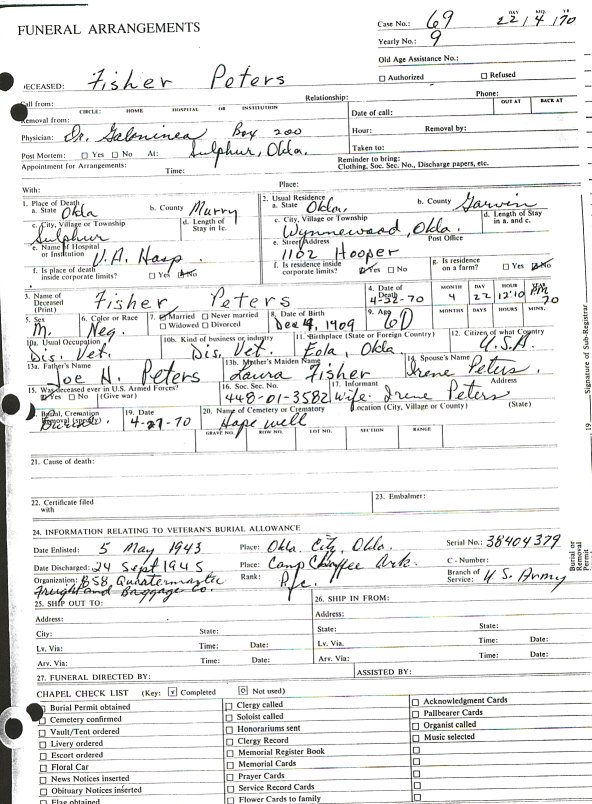 FUNERAL ARRANGEMENTS
Case No.: 69 DAY MO. YR. 22/4/70
Yearly No.: 9
Old Age Assistance No.:
Authorized Refused
DECEASED: Fisher Peters
Call from: Relationship: Phone:
CIRCLE: HOME HOSPITAL OR INSTITUTION OUT AT BACK AT
Removal from: Date of call:
Physician: Dr. Box 200 Hour: Removal by:
Sulphur, Okla. Taken to:
Post Mortem: Yes No At: Reminder to bring:
Appointment for Arrangements: Time: Clothing, Soc. Sec. No., Discharge papers, etc.
With: Place:
1. Place of Death 2. Usual Residence
a. State Okla b. County Murry a. State Okla. b. County Garvin
c. City, Village or Township d. Length of Stay in 1c. c. City, Village or Township d. Length of Stay in a. and c.
Sulphur Wynnewood, Okla.
e. Name of Hospital or Institution V.A. Hosp. e. Street Address Post Office
1102 Hooper
f. Is place of death inside corporate limits? Yes No f. Is residence inside corporate limits? Yes No g. Is residence on a farm? Yes No
3. Name of Deceased (Print) Fisher Peters 4. Date of Death 4-22-70 MONTH 4 DAY 22 HOUR 12:10 AM YR. 70
5. Sex M. 6. Color or Race Neg. 7. Married Never married Widowed Divorced 8. Date of Birth Dec 4, 1909 9. Age 60 MONTHS DAYS HOURS MINS.
10a. Usual Occupation Dis. Vet. 10b. Kind of business or industry Dis. Vet. 11. Birthplace (State or Foreign Country) Eola, Okla 12. Citizen of what Country U.S.A.
13a. Father's Name Joe H. Peters 13b. Mother's Maiden Name Laura Fisher 14. Spouse's Name Irene Peters.
15. Was deceased ever in U.S. Armed Forces? Yes No (Give war) 16. Soc. Sec. No. 448-01-3582 17. Informant Wife- Irene Peters Address
18. Burial, Cremation Removal (specify) Burial 19. Date 4-27-70 20. Name of Cemetery or Crematory Hopewell Location (City, Village or County) (State)
GRAVE NO. ROW NO. LOT NO. SECTION RANGE
21. Cause of death:
22. Certificate filed with 23. Embalmer:
24. INFORMATION RELATING TO VETERAN'S BURIAL ALLOWANCE
Date Enlisted: 5 May 1943 Place: Okla. City, Okla. Serial No.: 38404379
Date Discharged: 24 Sept 1945 Place: Camp Chaffee Ark. C - Number:
Organization: 858, Quartermaster Freight and Baggage Co. Rank: Pfc. Branch of Service: U.S. Army
25. SHIP OUT TO: 26. SHIP IN FROM:
Address: Address:
City: State: State:
Lv. Via: Time: Date: Lv. Via: Time: Date:
Arv. Via: Time: Date: Arv. Via: Time: Date:
27. FUNERAL DIRECTED BY: ASSISTED BY:
CHAPEL CHECK LIST (Key: v Completed O Not used)
Burial Permit obtained Clergy called Acknowledgment Cards
Cemetery confirmed Soloist called Pallbearer Cards
Vault/Tent ordered Honorariums sent Organist called
Livery ordered Clergy Record Music selected
Escort ordered Memorial Register Book
Floral Car Memorial Cards
News Notices inserted Prayer Cards
Obituary Notices inserted Service Record Cards
Flag obtained Flower Cards to family
Signature of Sub-Registrar
19
Burial or Removal Permit